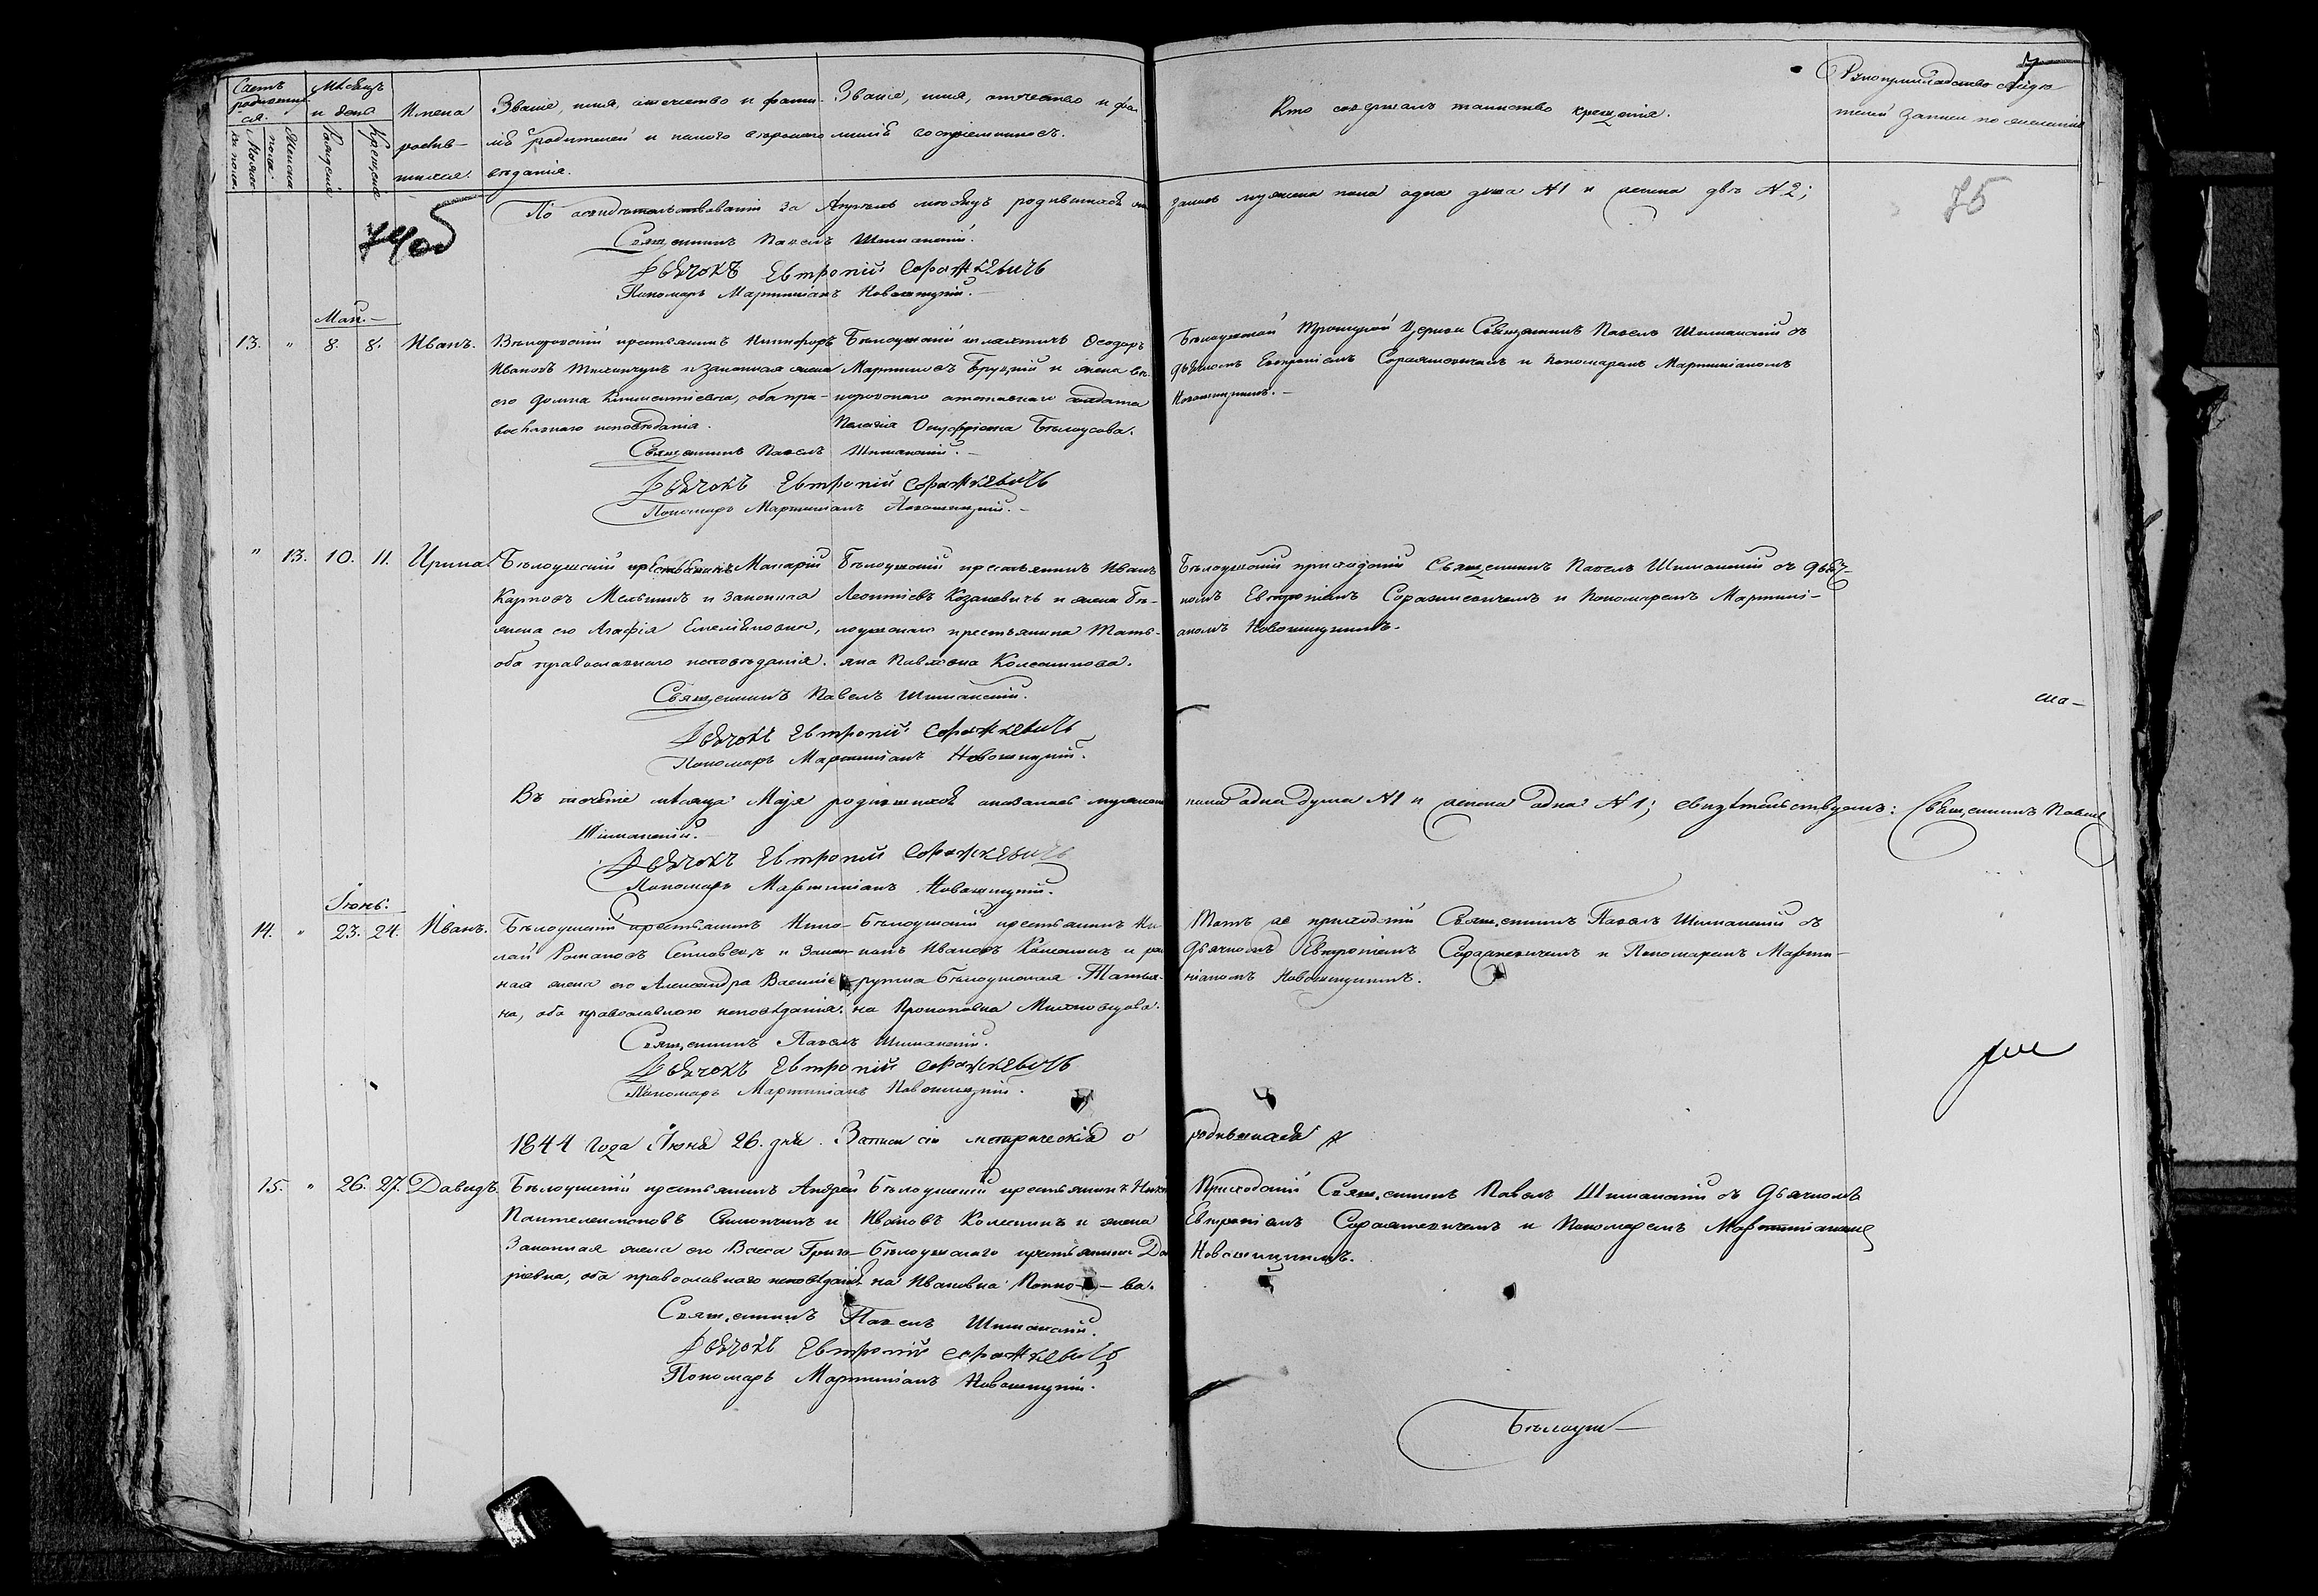 Счетъ родившихся.
Мѣсяцъ и день
Имена родившихся.
Званіе, имя, отечество и фамилія родителей и какого вѣроисповѣданія.
Званіе, имя, отчество и фамилія воспріемниковъ.
Кто совершалъ таинство крещенія.
Рукоприкладство свидѣтелей записи по желанію
Мужеска пола.
Женска пола.
Рожденія
Крещенія
74об
75
По освидѣтельствованіи за Апрѣль мѣсяцъ родившихся
записъ мужеска пола одна душа №1 и женска двѣ №2;
Священникъ Павелъ Шиманскій.
Дьячокъ Евтропій Соражкевичъ
Пономарь Мартиніанъ Новошицкій.
Май.
13. " 8. 8. Иванъ.
крестьянинъ Никифоръ
Ивановъ и законная жена
его Домна Климентіевна, оба православнаго исповѣданія.
Бѣлоушскій шляхтичъ Ѳеодоръ
Мартиновъ и жена
отставнаго солдата
Пелагія Онуфріевна Бѣлоусова.
Бѣлоушской Троицкой Церкви Священникъ Павелъ Шиманскій съ
дьячкомъ Евтропіемъ Соражкевичемъ и пономаремъ Мартиніаномъ
Новошицкимъ.
Священникъ Павелъ Шиманскій.
Дьячокъ Евтропій Соражкевичъ
Пономарь Мартиніанъ Новошицкій.
" 13. 10. 11. Ирина
Бѣлоушскій крестьянинъ Макарій
Карповъ Мельникъ и законная
жена его Агафія Емеліановна,
оба православнаго исповѣданія.
Бѣлоушскій крестьянинъ Иванъ
Леонтіевъ Козакевичъ и жена бѣлоушскаго
крестьянина Татьяна
Павловна Колесникова.
Бѣлоушскій приходскій Священникъ Павелъ Шиманскій съ дьячкомъ
Евтропіемъ Соражкевичемъ и пономаремъ Мартиніаномъ
Новошицкимъ.
Священникъ Павелъ Шиманскій.
Дьячокъ Евтропій Соражкевичъ
Пономарь Мартиніанъ Новошицкій.
Въ теченіе мѣсяца Мая родившихся оказалось мужеска
пола одна душа №1 и женска одна №1; свидѣтельствуемъ: Священникъ Павелъ
Шиманскій.
Дьячокъ Евтропій Соражкевичъ
Пономарь Мартиніанъ Новошицкій.
Іюнь.
14. " 23. 24. Иванъ.
Бѣлоушскій крестьянинъ Николай
Романовъ и законная
жена его Александра Василіевна,
оба православнаго исповѣданія.
Бѣлоушскій крестьянинъ
Ивановъ и
бѣлоушская Татьяна
Прокоповна
Тотъ же приходскій Священникъ Павелъ Шиманскій съ
дьячкомъ Евтропіемъ Соражкевичемъ и Пономаремъ Мартиніаномъ
Новошицкимъ.
Священникъ Павелъ Шиманскій.
Дьячокъ Евтропій Соражкевичъ
Пономарь Мартиніанъ Новошицкій.
1844 года Іюня 26. дня. Записи сіи метрическія о родившихся
15. " 26. 27. Давидъ.
Бѣлоушскій крестьянинъ Андрей
Пантелеимоновъ и
законная жена его Васса Григоріевна,
оба православнаго исповѣданія.
Бѣлоушскій крестьянинъ
Ивановъ и жена
Бѣлоушскаго крестьянина
Ивановна
Приходскій Священникъ Павелъ Шиманскій съ Дьячкомъ
Евтропіемъ Соражкевичемъ и Пономаремъ Мартиніаномъ
Новошицкимъ.
Священникъ Павелъ Шиманскій.
Дьячокъ Евтропій Соражкевичъ
Пономарь Мартиніанъ Новошицкій.
Бѣлоуш-